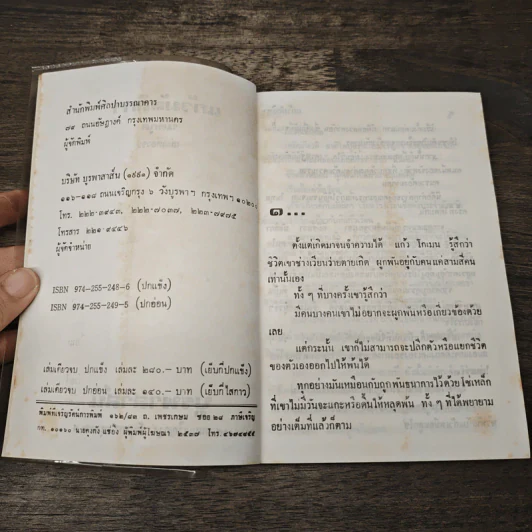 สำนักพิมพ์ศิลปาบรรณาคาร
๗๙ ถนนอัษฎางค์ กรุงเทพมหานคร
ผู้จัดพิมพ์
บริษัท บูรพาสาส์น (๑๙๙๑) จำกัด
๑๑๖-๑๑๘ ถนนเจริญกรุง ๖ วังบูรพาฯ กรุงเทพฯ ๑๐๒๐๐
โทร. ๒๒๒-๓๙๔๓, ๒๒๒-๗๐๓๗, ๒๒๓-๗๙๗๕
โทรสาร ๒๒๑-๙๔๔๖
ผู้จัดจำหน่าย
ISBN 974-255-248-6 (ปกแข็ง)
ISBN 974-255-249-5 (ปกอ่อน)
เล่มเดียวจบ ปกแข็ง เล่มละ ๒๘๐.- บาท (เย็บกี่ปกแข็ง)
เล่มเดียวจบ ปกอ่อน เล่มละ ๑๔๐.- บาท (เย็บกี่ไสกาว)
พิมพ์ที่เจริญรัตน์การพิมพ์ ถ. เพชรเกษม ซอย ๒๙ ภาษีเจริญ
กท. ๑๐๑๖๐ ผู้พิมพ์ผู้โฆษณา ๒๕๓๗ โทร.
๑...
ตั้งแต่เกิดมาจนจำความได้ แก้ว โกเมน รู้สึกว่า
ชีวิตเขาช่างเวียนว่ายตายเกิด ผูกพันอยู่กับคนแค่สามสี่คน
เท่านั้นเอง
ทั้ง ๆ ที่บางครั้งเขารู้สึกว่า
มีคนบางคนเขาไม่อยากจะผูกพันหรือเกี่ยวข้องด้วย
เลย
แต่กระนั้น เขาก็ไม่สามารถจะปลีกตัวหรือแยกชีวิต
ของตัวเองออกไปให้พ้นได้
ทุกอย่างมันเหมือนกับถูกพันธนาการไว้ด้วยโซ่เหล็ก
ที่เขาไม่มีวันจะแกะหรือดิ้นให้หลุดพ้น ทั้ง ๆ ที่ได้พยายาม
อย่างเต็มที่แล้วก็ตาม